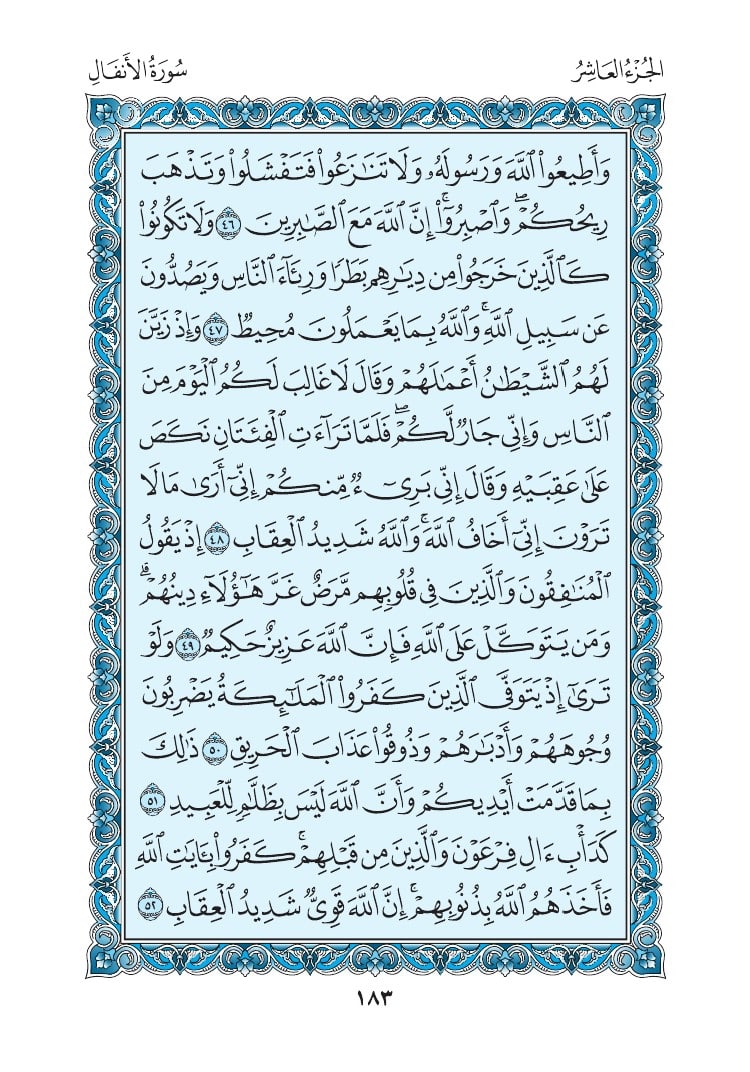 الجُزْءُ العَاشِرُ
سُورَةُ الأَنفَالِ
وَأَطِيعُواْ ٱللَّهَ وَرَسُولَهُۥ وَلَا تَنَٰزَعُواْ فَتَفْشَلُواْ وَتَذْهَبَ
رِيحُكُمْۖ وَٱصْبِرُوٓاْۚ إِنَّ ٱللَّهَ مَعَ ٱلصَّٰبِرِينَ ٤٦ وَلَا تَكُونُواْ
كَٱلَّذِينَ خَرَجُواْ مِن دِيَٰرِهِم بَطَرًا وَرِئَآءَ ٱلنَّاسِ وَيَصُدُّونَ
عَن سَبِيلِ ٱللَّهِۚ وَٱللَّهُ بِمَا يَعْمَلُونَ مُحِيطٌ ٤٧ وَإِذْ زَيَّنَ
لَهُمُ ٱلشَّيْطَٰنُ أَعْمَٰلَهُمْ وَقَالَ لَا غَالِبَ لَكُمُ ٱلْيَوْمَ مِنَ
ٱلنَّاسِ وَإِنِّي جَارٌ لَّكُمْۖ فَلَمَّا تَرَآءَتِ ٱلْفِئَتَانِ نَكَصَ
عَلَىٰ عَقِبَيْهِ وَقَالَ إِنِّي بَرِيٓءٌ مِّنكُمْ إِنِّيٓ أَرَىٰ مَا لَا
تَرَوْنَ إِنِّيٓ أَخَافُ ٱللَّهَۚ وَٱللَّهُ شَدِيدُ ٱلْعِقَابِ ٤٨ إِذْ يَقُولُ
ٱلْمُنَٰفِقُونَ وَٱلَّذِينَ فِي قُلُوبِهِم مَّرَضٌ غَرَّ هَٰٓؤُلَآءِ دِينُهُمْۗ
وَمَن يَتَوَكَّلْ عَلَى ٱللَّهِ فَإِنَّ ٱللَّهَ عَزِيزٌ حَكِيمٌ ٤٩ وَلَوْ
تَرَىٰٓ إِذْ يَتَوَفَّى ٱلَّذِينَ كَفَرُواْ ٱلْمَلَٰٓئِكَةُ يَضْرِبُونَ
وُجُوهَهُمْ وَأَدْبَٰرَهُمْ وَذُوقُواْ عَذَابَ ٱلْحَرِيقِ ٥٠ ذَٰلِكَ
بِمَا قَدَّمَتْ أَيْدِيكُمْ وَأَنَّ ٱللَّهَ لَيْسَ بِظَلَّٰمٍ لِّلْعَبِيدِ ٥١
كَدَأْبِ ءَالِ فِرْعَوْنَ وَٱلَّذِينَ مِن قَبْلِهِمْۚ كَفَرُواْ بِـَٔايَٰتِ ٱللَّهِ
فَأَخَذَهُمُ ٱللَّهُ بِذُنُوبِهِمْۚ إِنَّ ٱللَّهَ قَوِيٌّ شَدِيدُ ٱلْعِقَابِ ٥٢
١٨٣